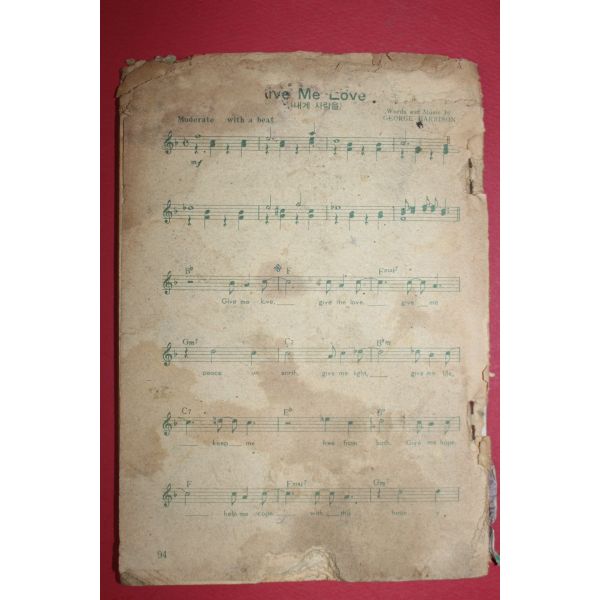 ive Me Love
(내게 사랑을)
Words and Music by
Moderate with a beat
GEORGE HARRISON
mf
B♭ F Fmaj7
Give me love, give me love, give me
Gm7 C7 B♭m
peace on earth, give me light, give me life,
C7 E♭ B♭
keep me free from birth. Give me hope,
F Fmaj7 Gm7
help me cope with this
94